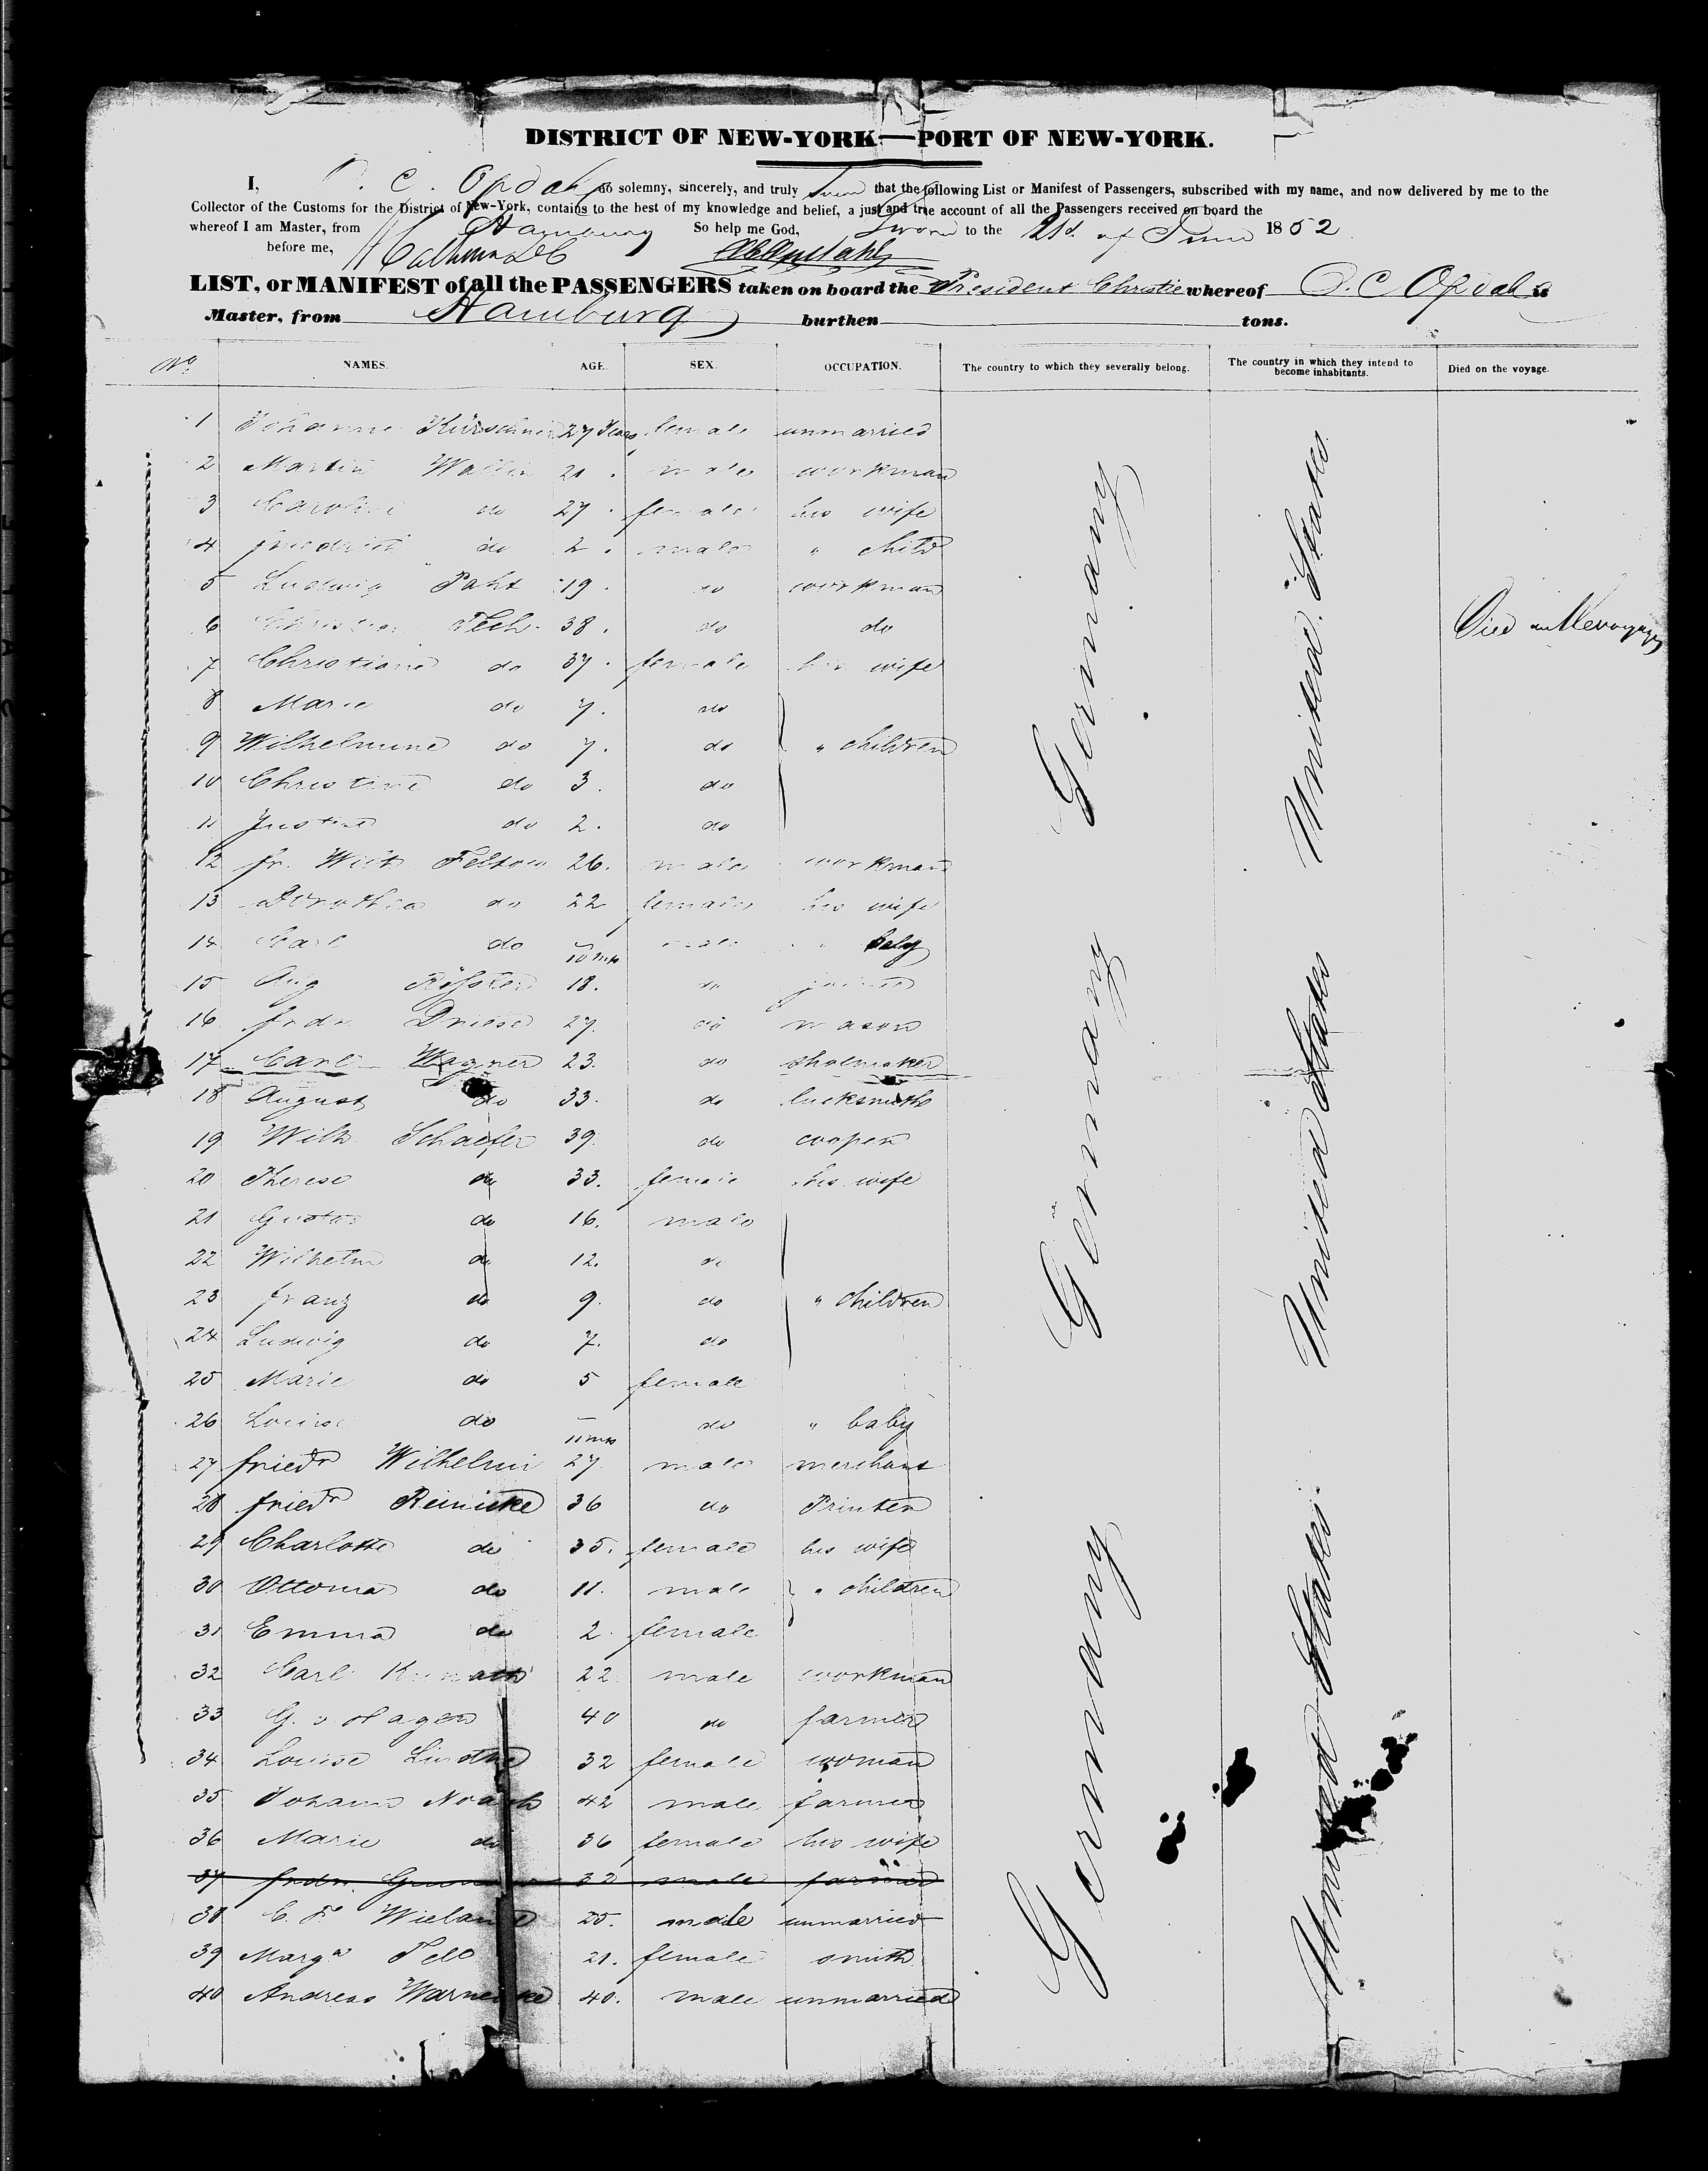 DISTRICT OF NEW-YORK—PORT OF NEW-YORK.
I, C. Opdahl do solemny, sincerely, and truly that the following List or Manifest of Passengers, subscribed with my name, and now delivered by me to the
Collector of the Customs for the District of New-York, contains to the best of my knowledge and belief, a just and true account of all the Passengers received on board the
whereof I am Master, from Hamburg So help me God, Sworn to the 21st of June 1852
before me,
LIST, or MANIFEST of all the PASSENGERS taken on board the President Christie whereof C Opdahl is
Master, from Hamburg burthen tons.
No. NAMES. AGE. SEX. OCCUPATION. The country to which they severally belong. The country in which they intend to become inhabitants. Died on the voyage.
1 Johanne Kürschner 27 Years female unmarried
2 Martin 21 male workman
3 Caroline do 27 female his wife
4 Friedrich do 2 male " child
5 Ludwig Paht 19 do workman
6 Christian Tech 38 do do Died on the voyage
7 Christiane do 37 female his wife
8 Marie do 7 do
9 Wilhelmine do 7 do " children
10 Christine do 3 do
11 Justine do 2 do
12 fr. Wilh Feltow 26 male workman
13 Dorothea do 22 female his wife
14 Carl do 10 mts male " baby
15 Aug Rößler 18 do joiner
16 Frdr. Driese 27 do mason
17 Carl Wagner 23 do shoemaker
18 August do 33 do locksmith
19 Wilh. Schaefer 39 do cooper
20 Therese do 33 female his wife
21 Gustav do 16 male
22 Wilhelm do 12 do
23 Franz do 9 do " children
24 Ludwig do 7 do
25 Marie do 5 female
26 Louise do 11 mts do " baby
27 Friedr Wilhelmi 27 male merchant
28 Friedr Reinicke 36 do Printer
29 Charlotte do 35 female his wife
30 Ottomar do 11 male " children
31 Emma do 2 female
32 Carl Kunath 22 male workman
33 G. v Hagen 40 do farmer
34 Louise 32 female woman
35 Johann Noack 42 male farmer
36 Marie do 36 female his wife
37 Frdr. 32 male farmer
38 C. F. Wieland 25 male unmarried
39 Marga Fell 21 female smith
40 Andreas Warnecke 40 male unmarried
Germany
Germany
Germany
United States
United States
United States